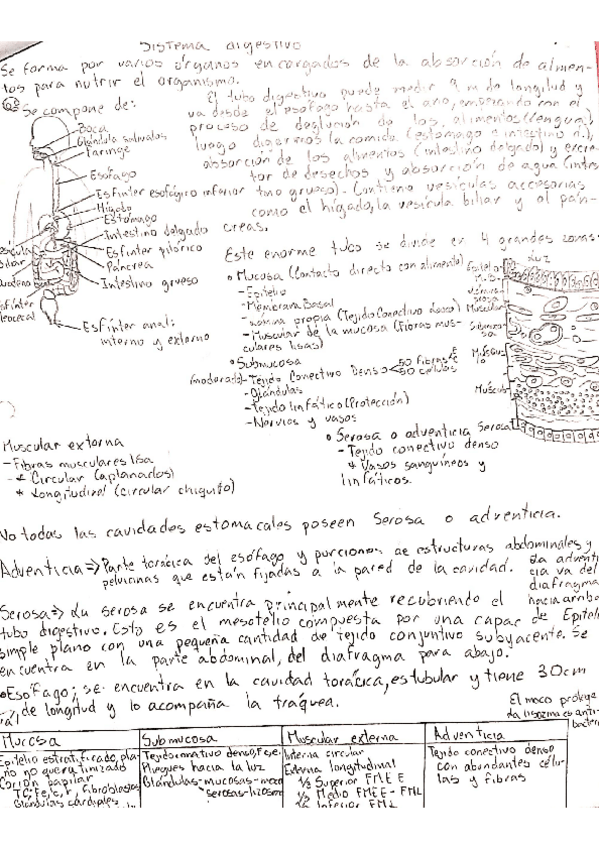 Sistema digestivo
Se forma por varios órganos encargados de la absorción de alimen-
tos para nutrir el organismo.
Se compone de:
El tubo digestivo puede medir 9 m de longitud y
va desde el esófago hasta el ano, empezando con el
proceso de deglución de los alimentos (lengua)
luego digerirlos la comida (estomago e intestino d.),
absorción de los alimentos (intestino delgado) y excre
tor de desechos y absorción de agua (intes
tino grueso). Contiene vesículas accesorias
como el hígado, la vesícula biliar y el pán-
creas.
Boca
Glándula salivales
Faringe
Esofago
Esfínter esofágico inferior
Hígado
Estómago
Intestino delgado
Esfínter pilórico
Páncrea
Intestino grueso
biliar
Duodeno
Esfínter anal:
interno y externo
Este enorme tubo se divide en 4 grandes zonas:
Mucosa (Contacto directo con alimento)
-Epitelio
-Membrana Basal
-Lamina propia (Tejido Conectivo laxo)
-Muscular de la mucosa (Fibras mus-
culares lisas)
Submucosa
(moderado)-Tejido Conectivo Denso 50 fibras 50 células
-Glándulas
-Tejido linfático (Protección)
-Nervios y vasos
Serosa o adventicia
-Tejido conectivo denso
* Vasos sanguíneos y
linfáticos.
Luz
Epitelio
Serosa
Muscular externa
-Fibras musculares lisa
-* Circular (aplanados)
* Longitudinal (circular chiquito)
No todas las cavidades estomacales poseen Serosa o adventicia.
Adventicia=> Parte torácica del esófago y porciones de estructuras abdominales y
pelvicinas que están fijadas a la pared de la cavidad.
La adventi
cia va del
diafragma
hacia arriba
Serosa=> La serosa se encuentra principalmente recubriendo el
tubo digestivo. Esto es el mesotelio compuesta por una capar de Epitel
simple plano con una pequeña cantidad de tejido conjuntivo subyacente. Se
encuentra en la parte abdominal, del diafragma para abajo.
Esofago; se encuentra en la cavidad torácica, es tubular y tiene 30cm
de longitud y lo acompaña la tráquea.
El moco protege
da lisozima es anti-
bacter
Mucosa
Epitelio estratificado, pla-
no no queratinizado
Corion papilar
TC, Fe, C, F, fibroblastos
Glándulas cardiales
Submucosa
Tejido normativo denso, F, c, e.
Pliegues hacia la luz
Glándulas-mucosas-moco
serosas-lizosim
Muscular externa
Interna circular
Externa longitudinal
1/3 Superior FME E
1/3 Medio FMEE-FML
1/3 Inferior FML
Adventicia
Tejido conectivo denso
con abundantes célu-
las y fibras